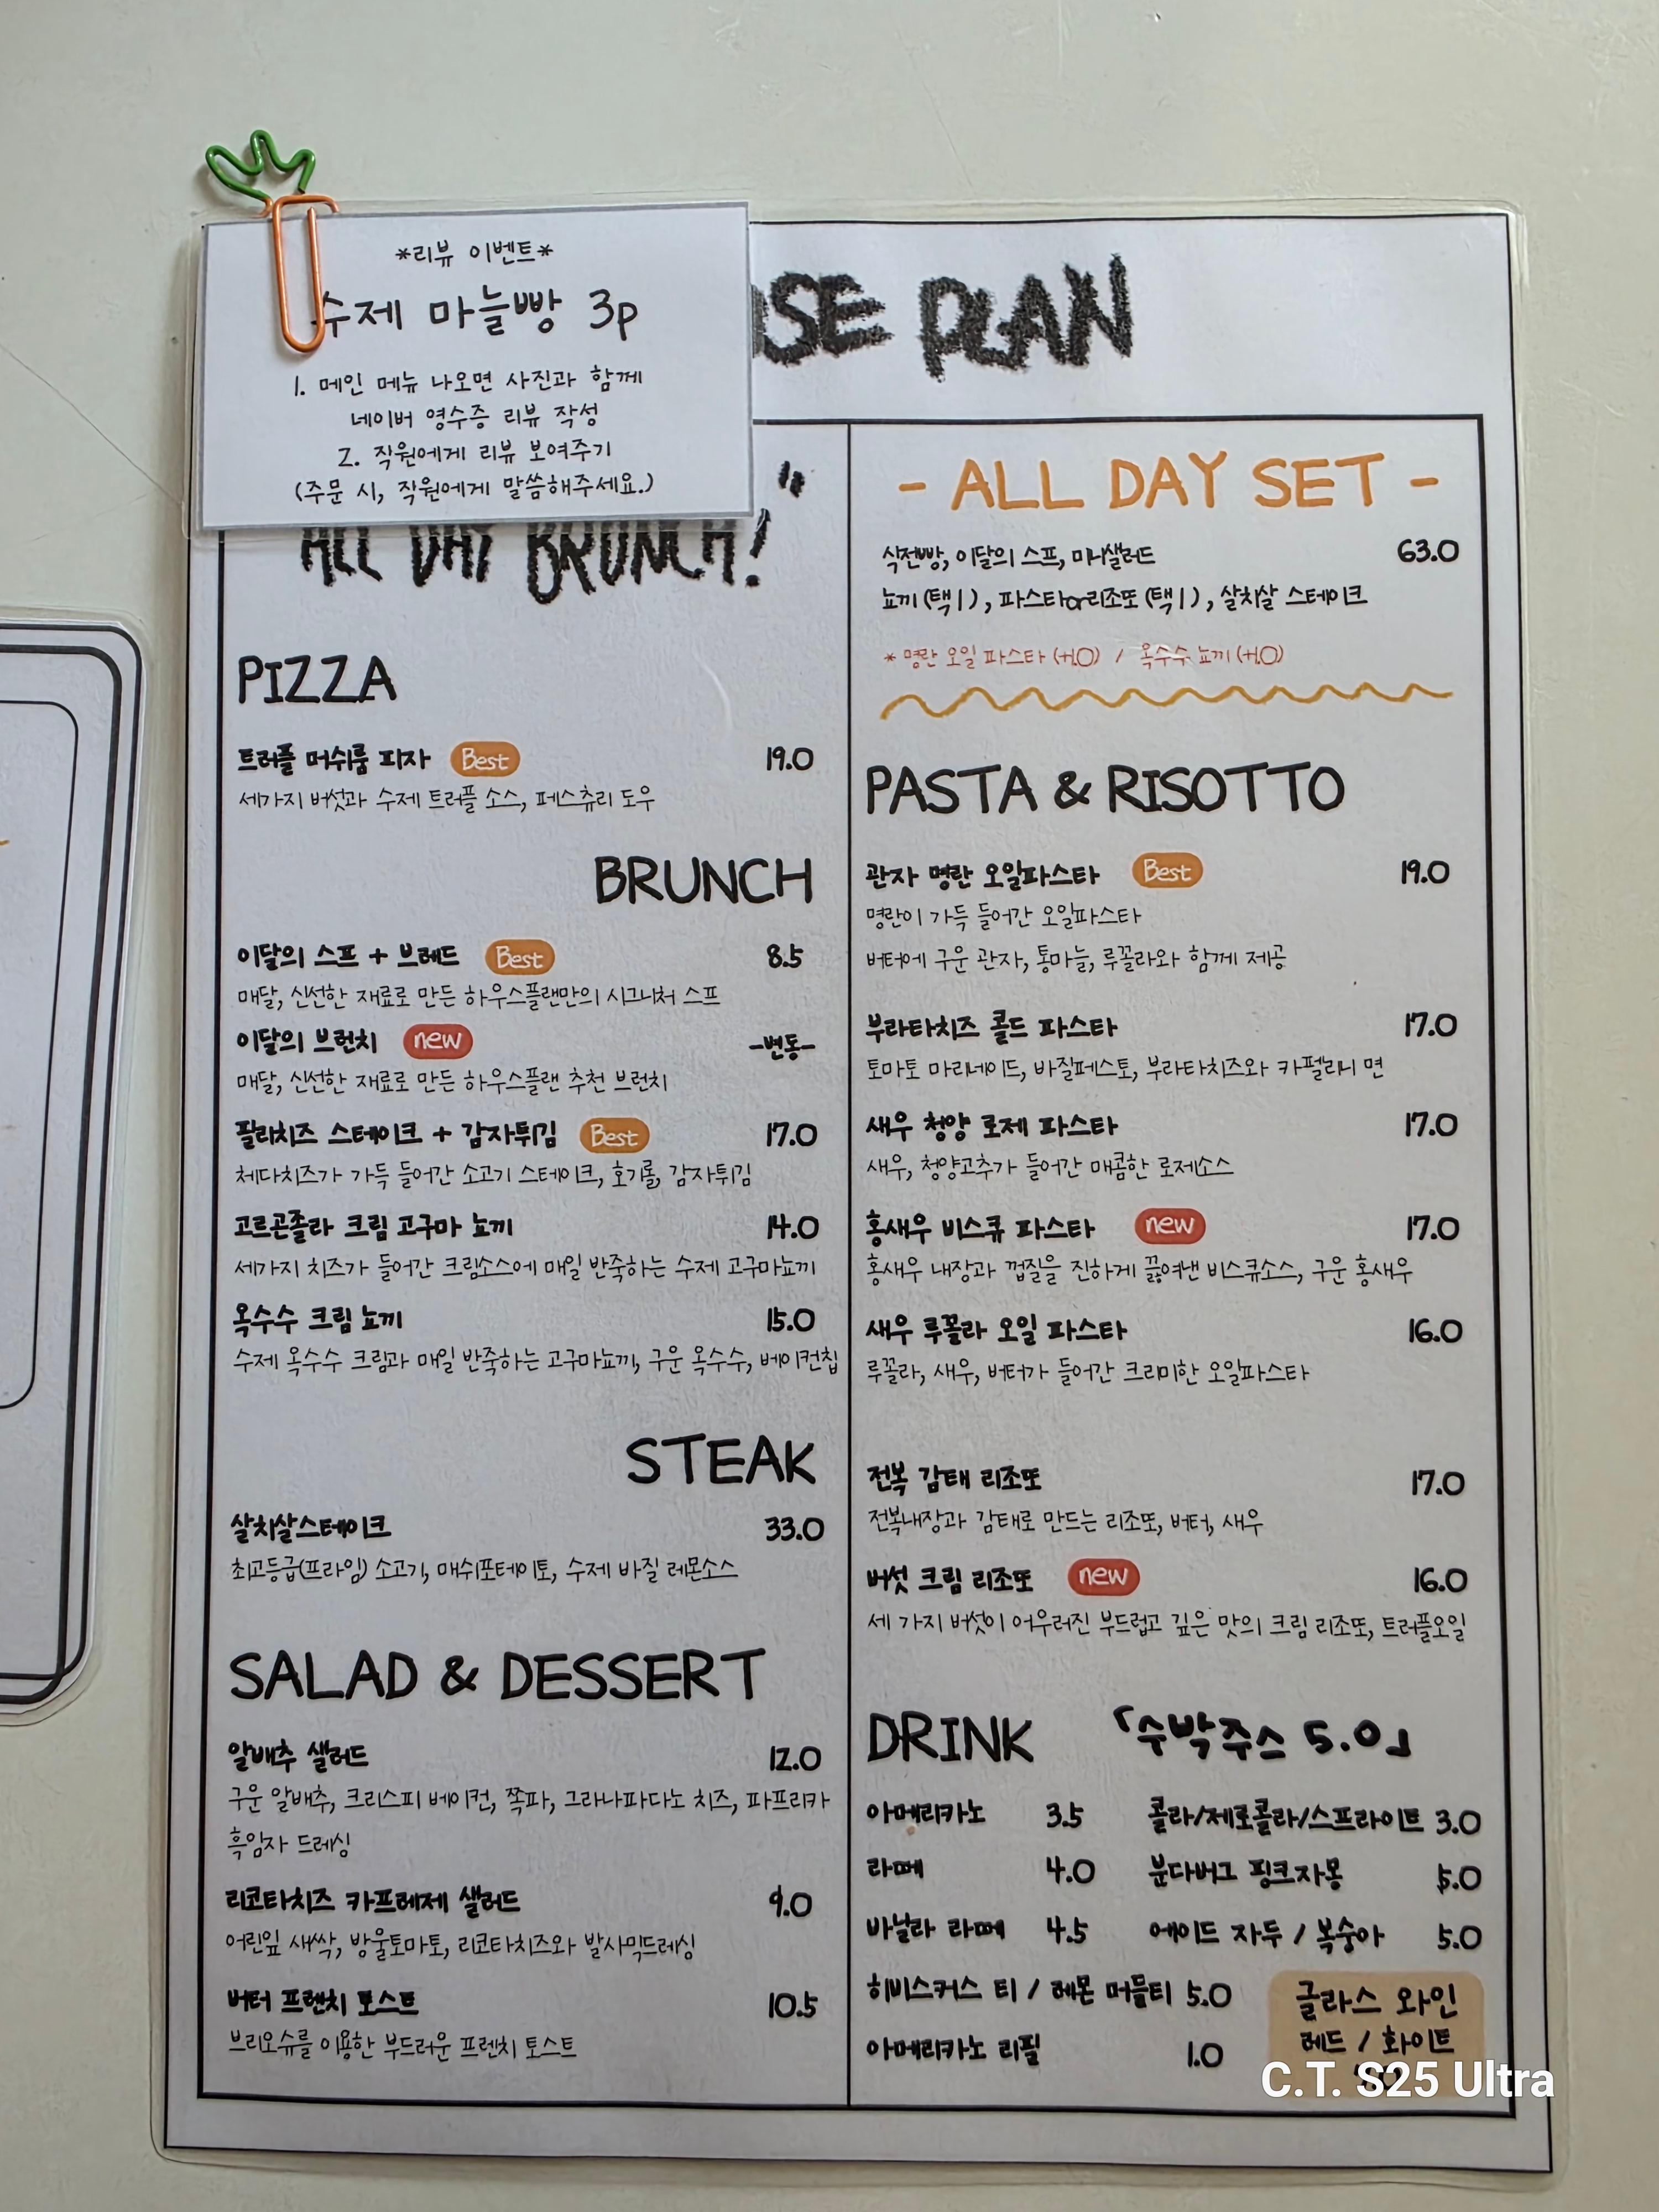 *리뷰 이벤트*
수제 마늘빵 3p
1. 메인 메뉴 나오면 사진과 함께
네이버 영수증 리뷰 작성
2. 직원에게 리뷰 보여주기
(주문 시, 직원에게 말씀해주세요.)
PLAN
ALL DAY BRUNCH!"
PIZZA
트러플 머쉬룸 피자 Best 19.0
세가지 버섯과 수제 트러플 소스, 페스츄리 도우
BRUNCH
이달의 스프 + 브레드 Best 8.5
매달, 신선한 재료로 만든 하우스플랜만의 시그니처 스프
이달의 브런치 new -변동-
매달, 신선한 재료로 만든 하우스플랜 추천 브런치
필리치즈 스테이크 + 감자튀김 Best 17.0
체다치즈가 가득 들어간 소고기 스테이크, 호기롤, 감자튀김
고르곤졸라 크림 고구마 뇨끼 14.0
세가지 치즈가 들어간 크림소스에 매일 반죽하는 수제 고구마뇨끼
옥수수 크림 뇨끼 15.0
수제 옥수수 크림과 매일 반죽하는 고구마뇨끼, 구운 옥수수, 베이컨칩
STEAK
살치살스테이크 33.0
최고등급(프라임) 소고기, 매쉬포테이토, 수제 바질 레몬소스
SALAD & DESSERT
알배추 샐러드 12.0
구운 알배추, 크리스피 베이컨, 쪽파, 그라나파다노 치즈, 파프리카
흑임자 드레싱
리코타치즈 카프레제 샐러드 9.0
어린잎 새싹, 방울토마토, 리코타치즈와 발사믹드레싱
버터 프렌치 토스트 10.5
브리오슈를 이용한 부드러운 프렌치 토스트
- ALL DAY SET -
식전빵, 이달의 스프, 미니샐러드 63.0
뇨끼 (택1), 파스타or리조또 (택1), 살치살 스테이크
* 명란 오일 파스타 (+1.0) / 옥수수 뇨끼 (+1.0)
PASTA & RISOTTO
관자 명란 오일파스타 Best 19.0
명란이 가득 들어간 오일파스타
버터에 구운 관자, 통마늘, 루꼴라와 함께 제공
부라타치즈 콜드 파스타 17.0
토마토 마리네이드, 바질페스토, 부라타치즈와 카펠리니 면
새우 청양 로제 파스타 17.0
새우, 청양고추가 들어간 매콤한 로제소스
홍새우 비스큐 파스타 new 17.0
홍새우 내장과 껍질을 진하게 끓여낸 비스큐소스, 구운 홍새우
새우 루꼴라 오일 파스타 16.0
루꼴라, 새우, 버터가 들어간 크리미한 오일파스타
전복 감태 리조또 17.0
전복내장과 감태로 만드는 리조또, 버터, 새우
버섯 크림 리조또 new 16.0
세 가지 버섯이 어우러진 부드럽고 깊은 맛의 크림 리조또, 트러플오일
DRINK 「수박주스 5.0」
아메리카노 3.5 콜라/제로콜라/스프라이트 3.0
라떼 4.0 분다버그 핑크자몽 5.0
바닐라 라떼 4.5 에이드 자두 / 복숭아 5.0
히비스커스 티 / 레몬 머들티 5.0
아메리카노 리필 1.0
글라스 와인
레드 / 화이트
C.T. S25 Ultra